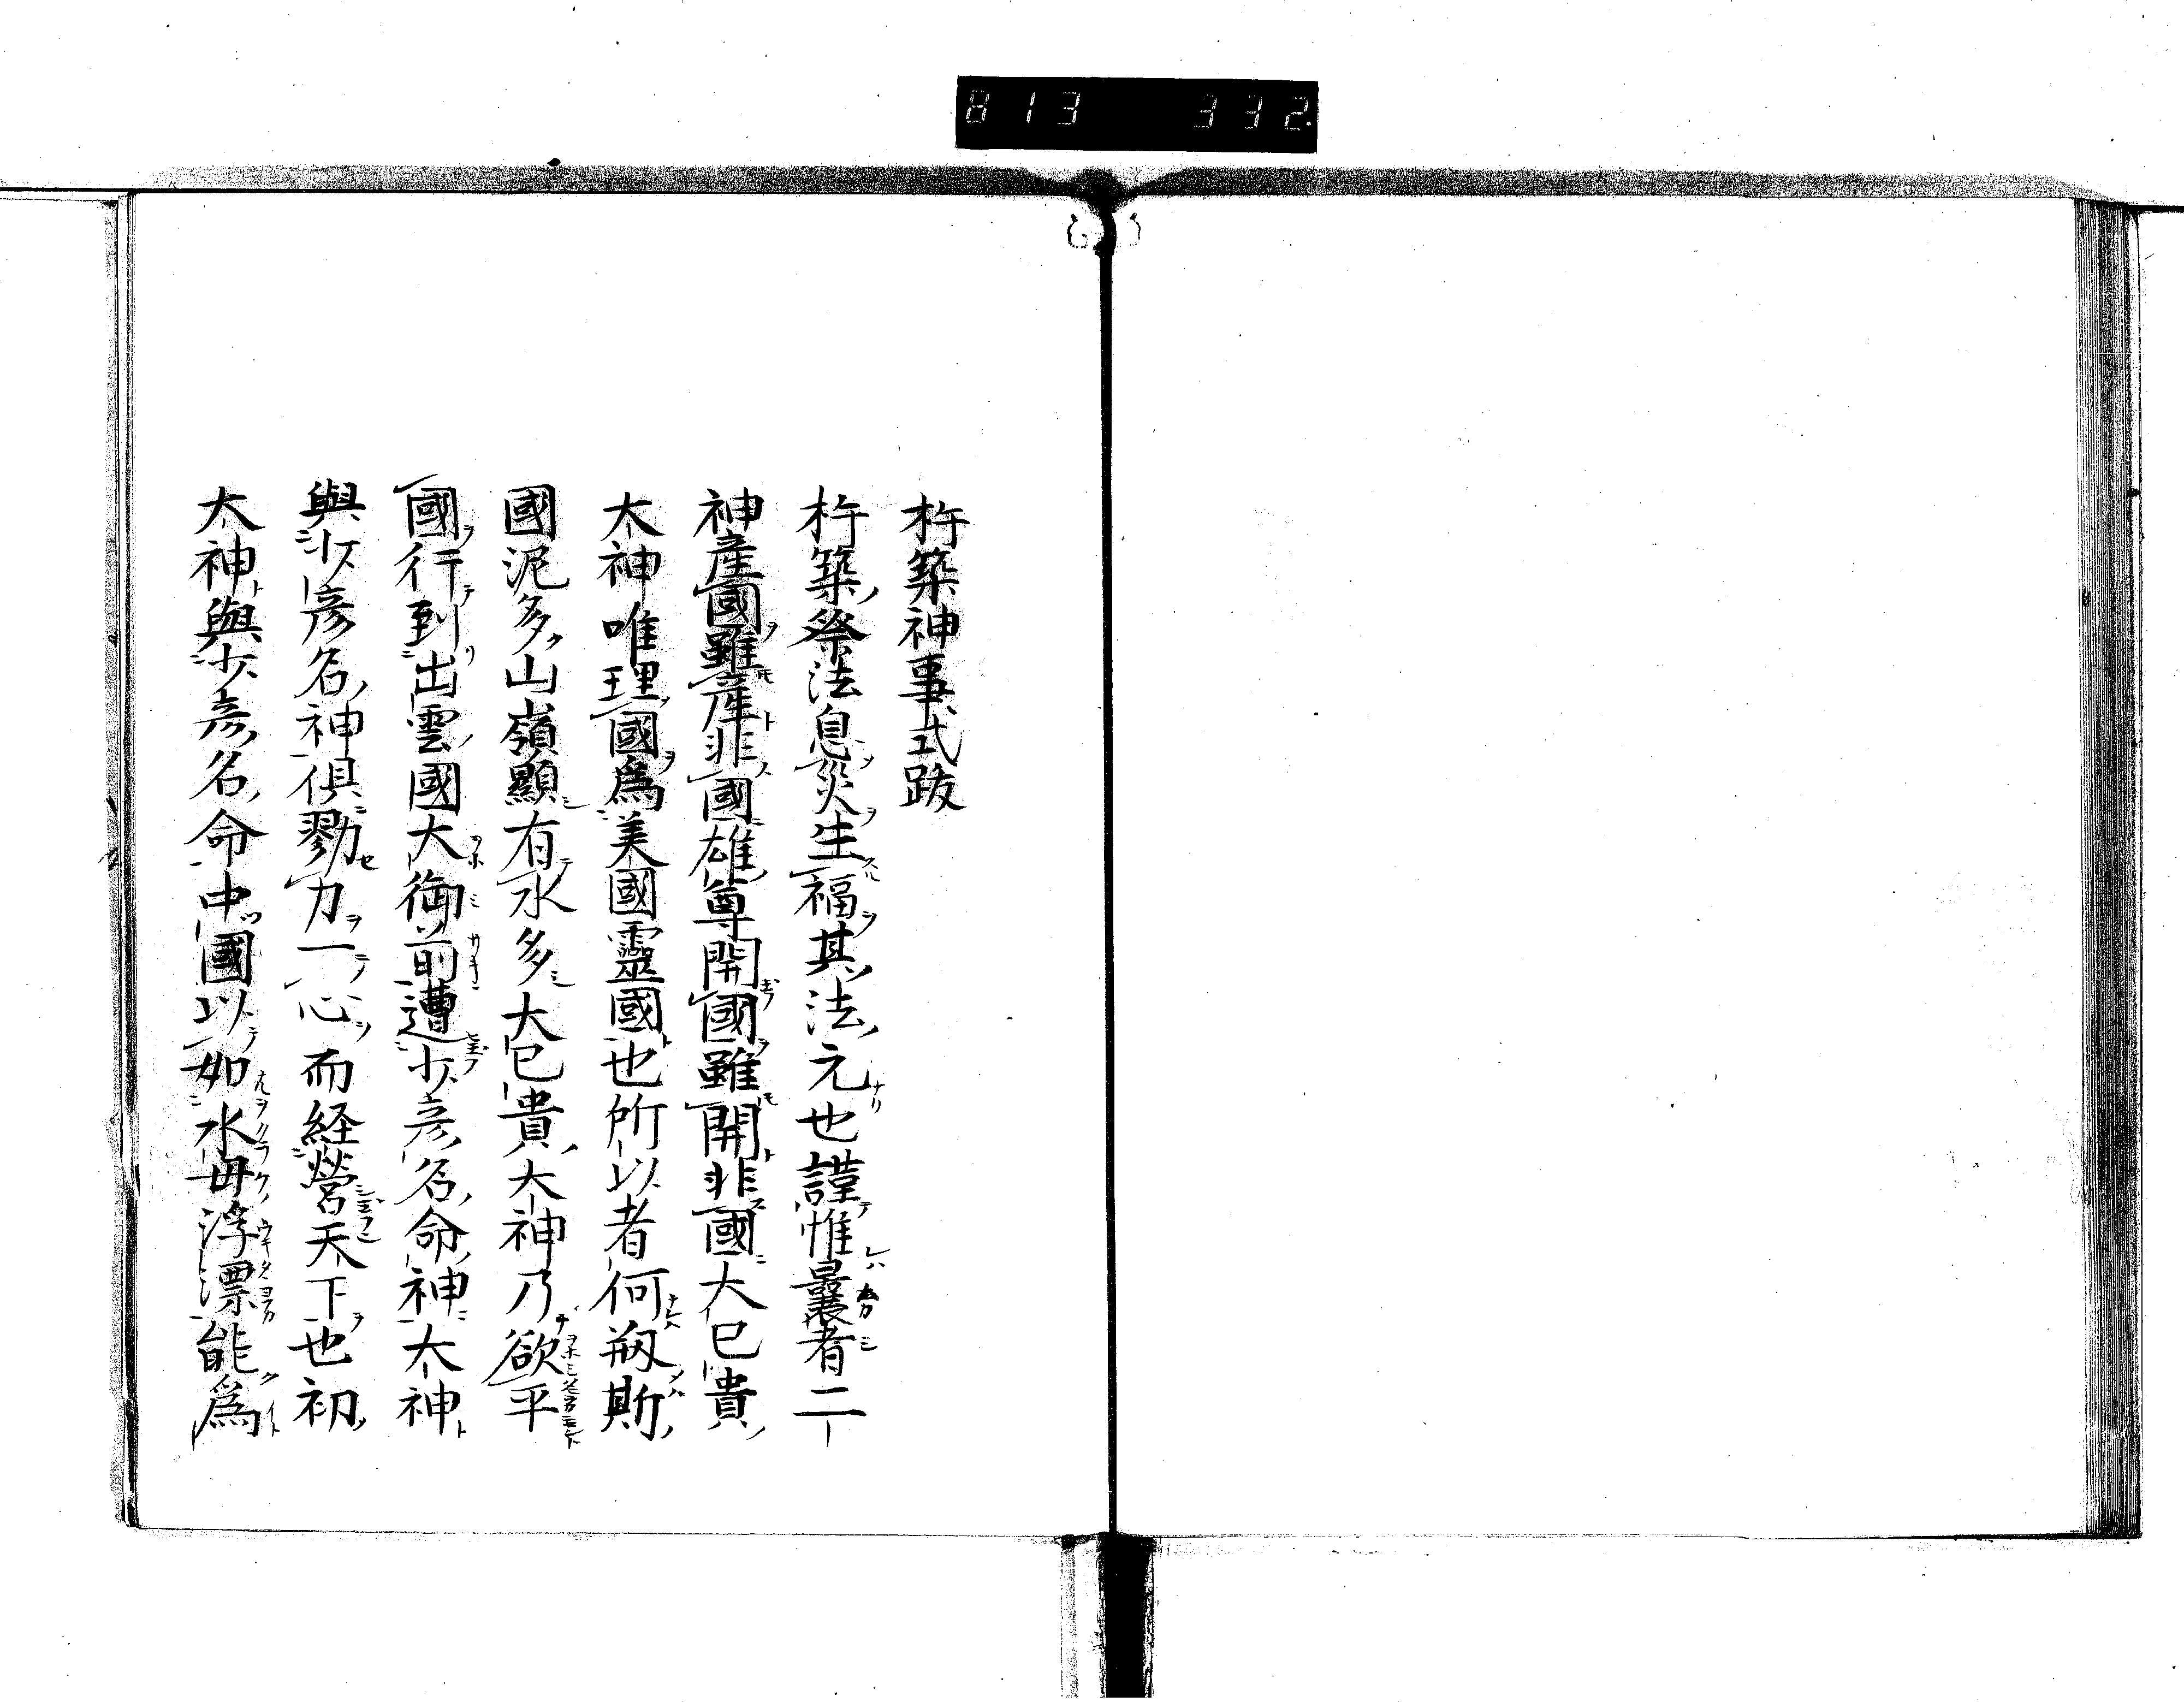 813 332
杵築神事式跋
杵築祭法息災生福其法元也謹惟曩者二
神產國雖產非國雄尊開國雖開非國大已貴
大神唯理國爲美國靈國也所以者何剏斯
國泥多山嶺顯有水多大已貴大神乃欲平
國行到出雲國大御前遭少彦名命神大神
與少彦名神俱勠力一心而経営天下也初
大神與少彦名命中國以如水母浮漂能爲